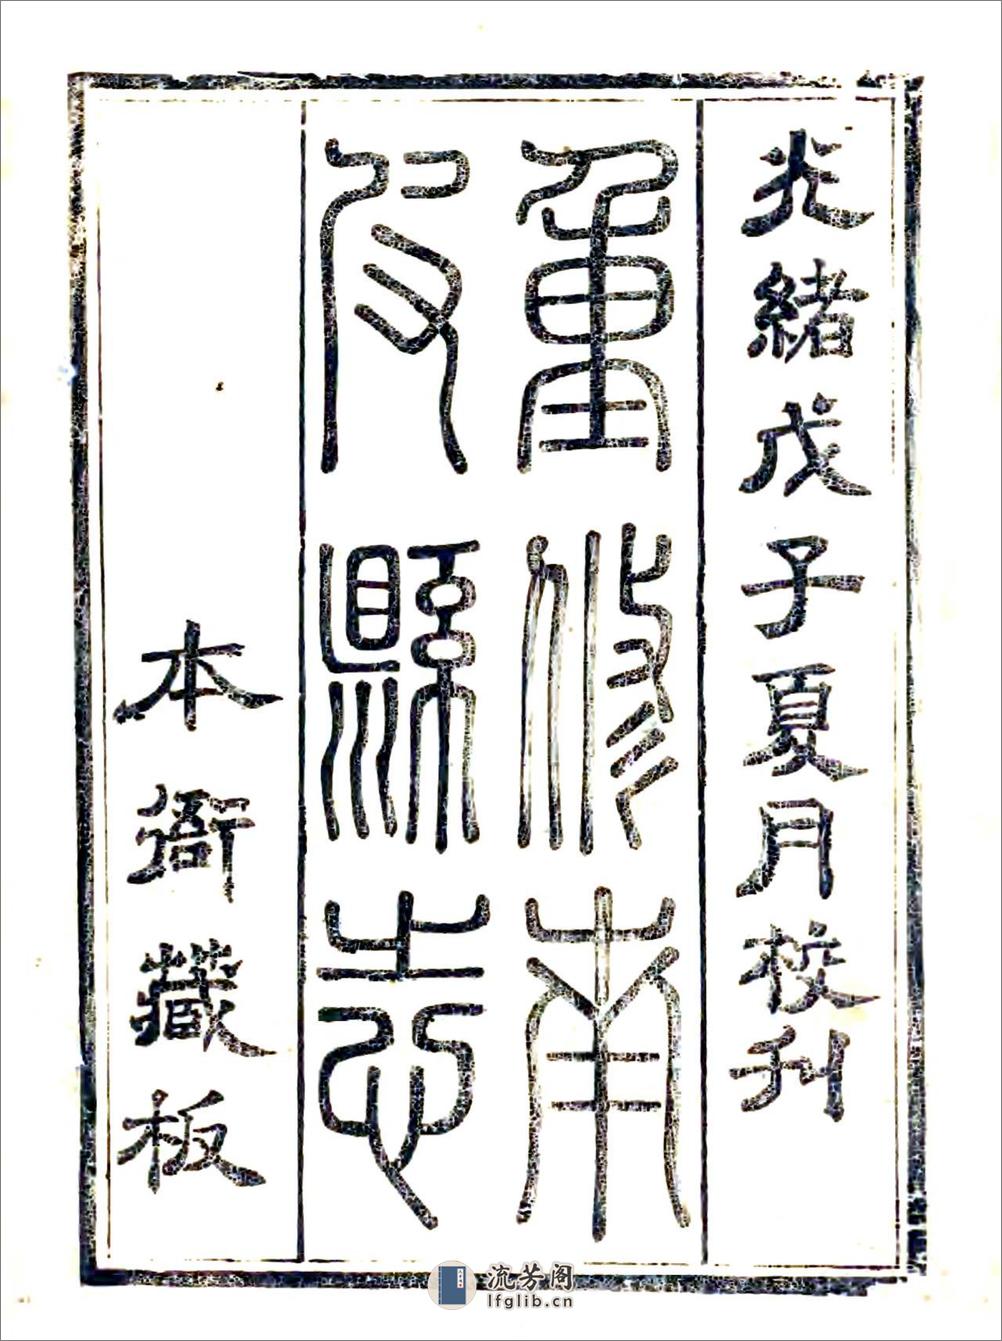 光緒戊子夏月校刊
重修南
皮縣志
本衙藏板
流芳阁
lfglib.cn